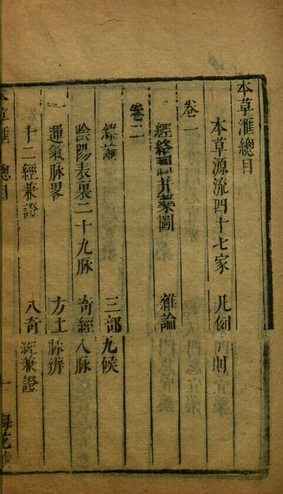 本草滙總目
本草源流四十七家 凡例 則
卷一
經絡 圖 雜論
卷二
雜論 三部九候
陰陽表裏二十九脉 奇經八脉
運氣脉畧 方土脉辨
十二經兼證 八奇 兼證
本草滙 總目 一